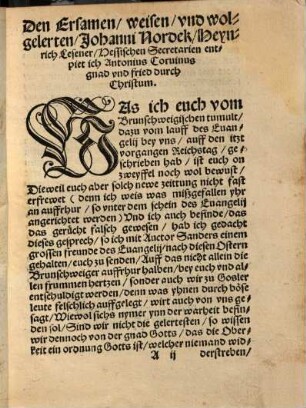 Den Ersamen/ weisen/ vnd wol-
gelerten/ Johanni Nordek/ Heyn-
rich Lesener/ Hessischen Secretarien ent-
piet ich Antonius Coruinus
gnad vnd fried durch
Christum.
WAs ich euch vom
Brunschweigischen tumult/
dazu vom lauff des Euan-
gelij bey vns/ auff den itzt
vorgangen Reichstag/ ge-
schrieben hab/ ist euch on
zweyffel noch wol bewust/
Dieweil euch aber solch newe zeittung nicht fast
erfrewet (denn ich weis was misgefallen yhr
an auffrhur/ so vnter dem schein des Euangelij
angerichtet werden) Vnd ich auch befinde/ das
das gerücht falsch gewesen/ hab ich gedacht
dieses gesprech/ so ich mit Auctor Sanders einem
grossen freunde des Euangelij/ nach diesen Ostern
gehalten/ euch zu senden/ Auff das nicht allein die
Brunschweiger auffrhur halben/ bey euch vnd al-
len frummen hertzen/ sonder auch wir zu Gosler
entschuldiget werden/ denn was yhnen durch böse
leute felschlich auffgelegt/ wirt auch von vns ge-
sagt/ Wiewol sichs nymer ynn der warheit befin-
den sol/ Sind wir nicht die gelertesten/ so wissen
wir dennoch von der gnad Gottes/ das die Ober-
keit ein ordnung Gotts ist/ welcher niemand wid-
A ij derstreben/